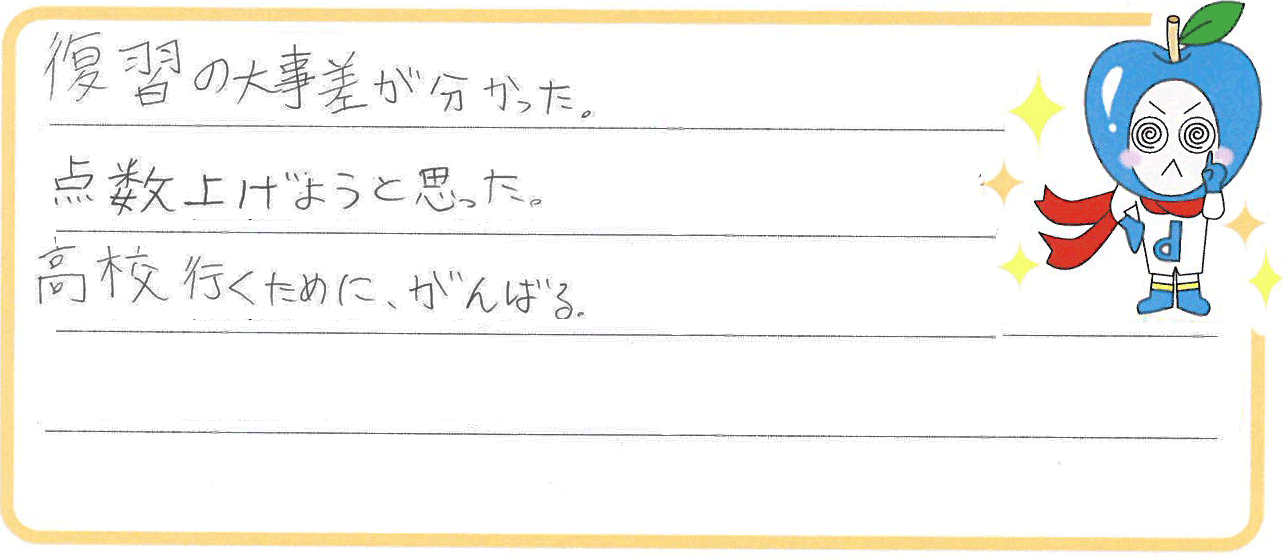 復習の大事差が分かった。
点数上げようと思った。
高校行くために、がんばる。
d